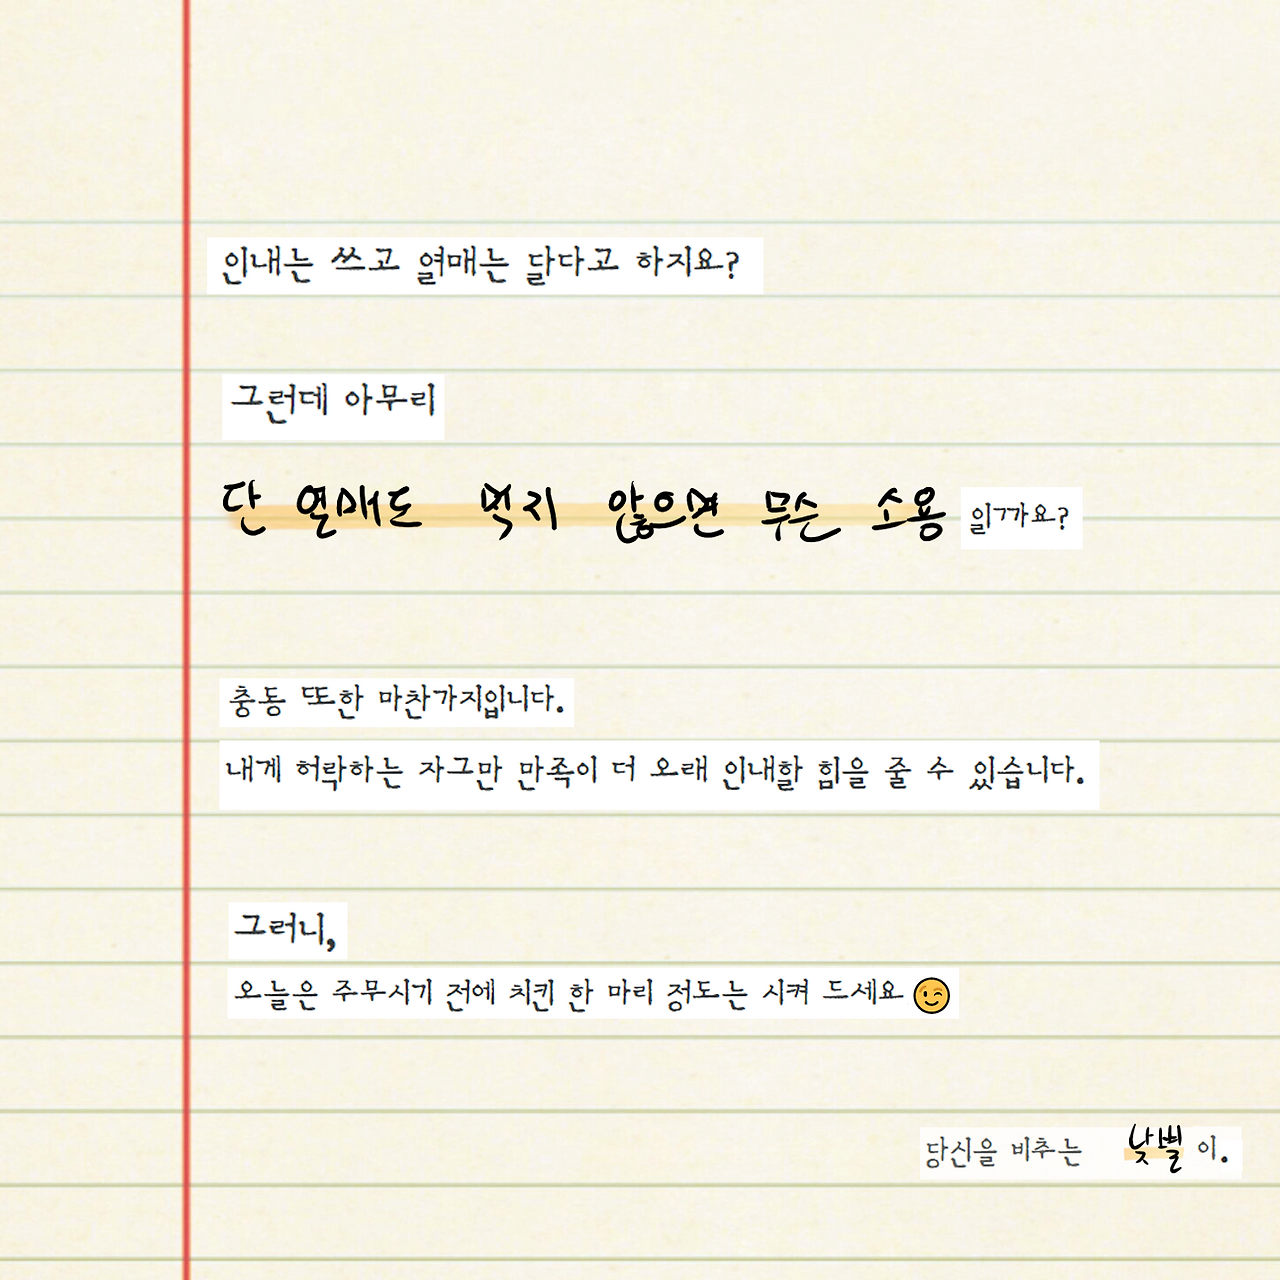 인내는 쓰고 열매는 달다고 하지요?
그런데 아무리
단 열매도 먹지 않으면 무슨 소용일까요?
충동 또한 마찬가지입니다.
내게 허락하는 자그만 만족이 더 오래 인내할 힘을 줄 수 있습니다.
그러니,
오늘은 주무시기 전에 치킨 한 마리 정도는 시켜 드세요😉
당신을 비추는 낮별이.